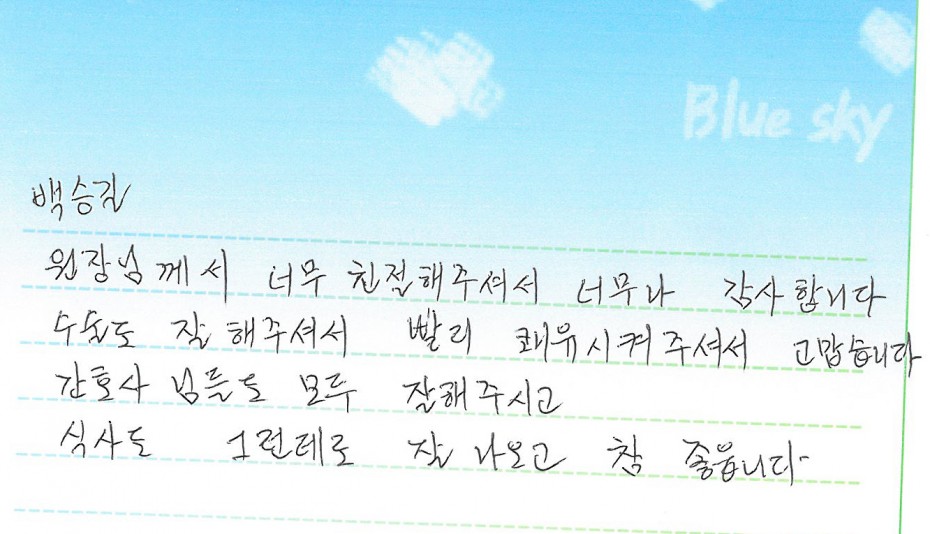 Blue sky
백승길
원장님께서 너무 친절해주셔서 너무나 감사합니다
수술도 잘 해주셔서 빨리 쾌유시켜주셔서 고맙습니다
간호사 님들도 모두 잘해주시고
식사도 그런데로 잘 나오고 참 좋읍니다